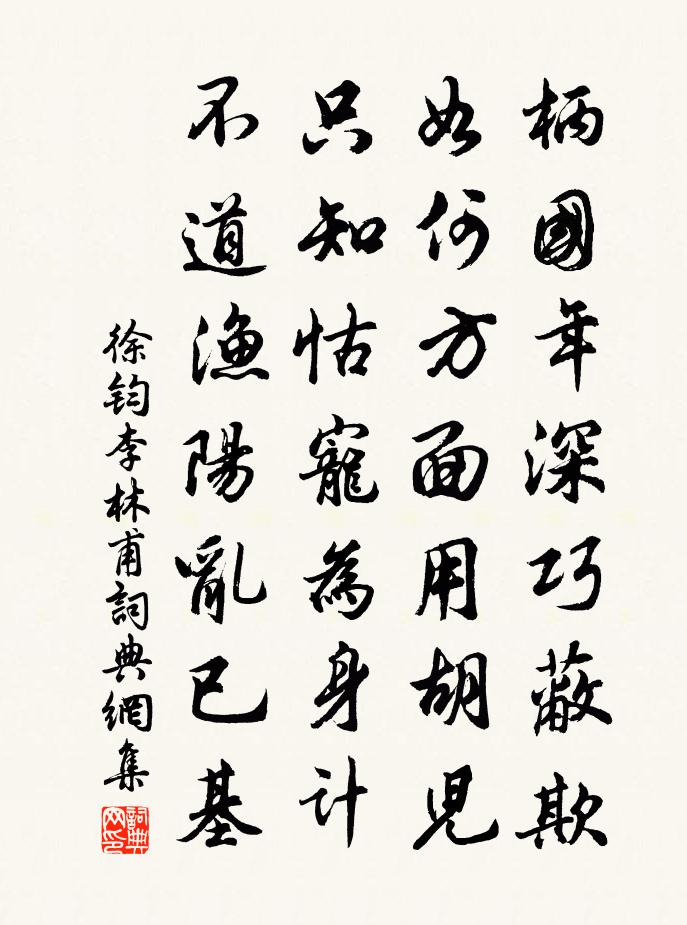 柄國年深巧蔽欺
如何方面用胡兒
只知怙寵為身計
不道漁陽亂已基
徐鈞李林甫詞典網集
詞典网印